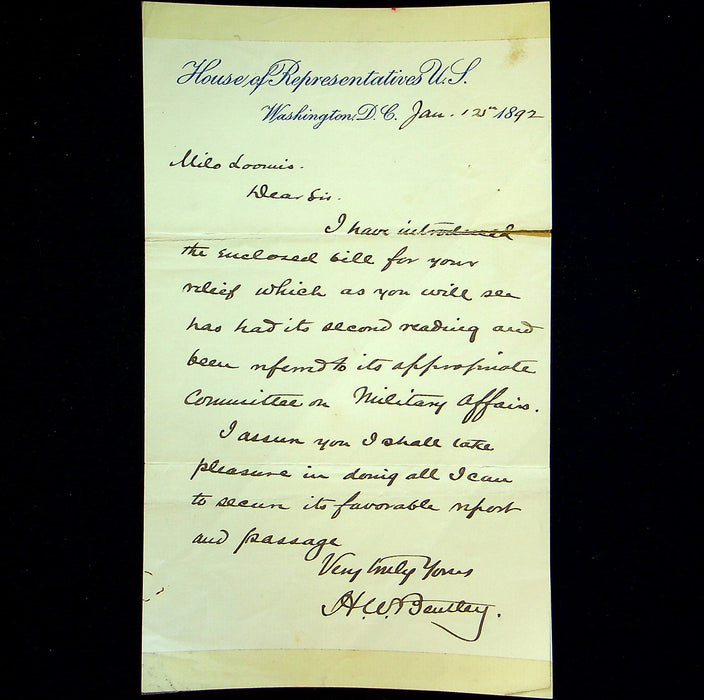 House of Representatives U.S.
Washington, D.C. Jan. 12th 1892
Milo Loomis.
Dear Sir.
I have introduced
the enclosed bill for your
relief which as you will see
has had its second reading and
been referred to its appropriate
Committee on Military Affairs.
I assure you I shall take
pleasure in doing all I can
to secure its favorable report
and passage
Very truly Yours
H.W. Bentley.